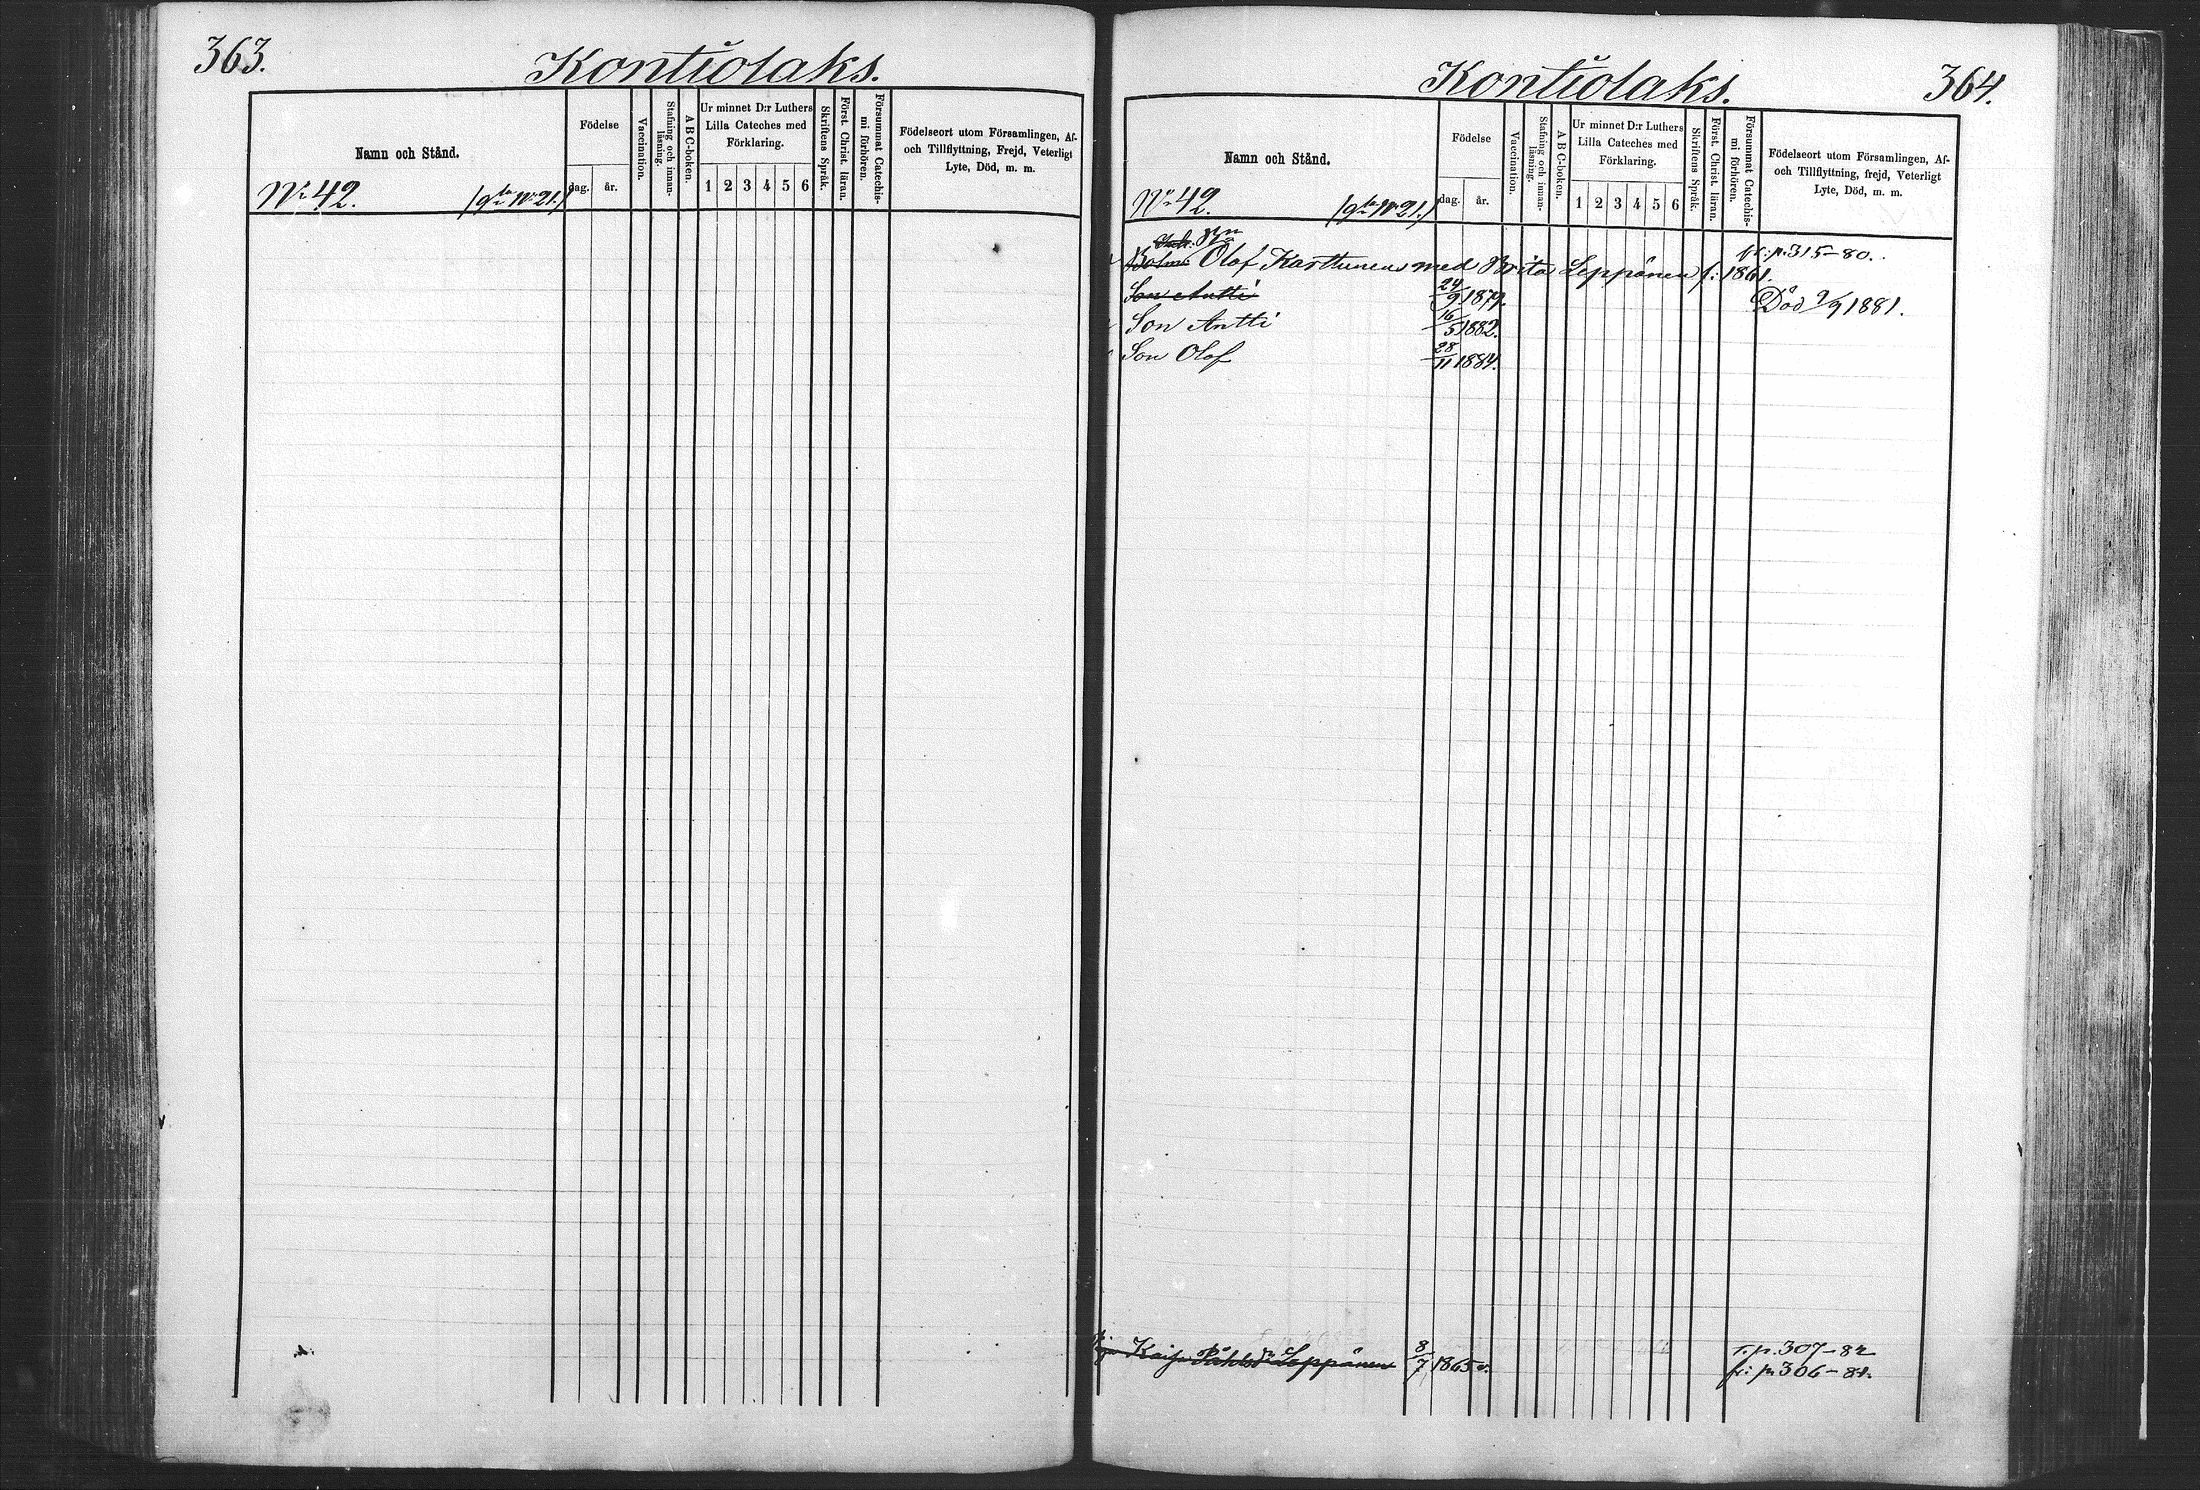 363.
Kontiolaks.
Namn och Stånd.
Födelse
dag. år.
Vaccination.
Stafning och innan-
läsning.
ABC-boken.
Ur minnet D:r Luthers
Lilla Cateches med
Förklaring.
1 2 3 4 5 6
Skriftens Språk.
Först. Christ. läran.
Försummat Catechis-
mi förhören.
Födelseort utom Församlingen, Af-
och Tillflyttning, Frejd, Veterligt
Lyte, Död, m. m.
No 42.
Kontiolaks.
364.
Namn och Stånd.
Födelse
dag. år.
Vaccination.
Stafning och innan-
läsning.
ABC-boken.
Ur minnet D:r Luthers
Lilla Cateches med
Förklaring.
1 2 3 4 5 6
Skriftens Språk.
Först. Christ. läran.
Försummat Catechis-
mi förhören.
Födelseort utom Församlingen, Af-
och Tillflyttning, frejd, Veterligt
Lyte, Död, m. m.
No 42.
Olof Karttunen med Brita Leppänen f: 1861. p. 315-80.
Son Antti 24/9 1879. Död 9/9 1881.
Son Antti 16/5 1882.
Son Olof 28/11 1884.
Kaisa Påhlsdr Leppänen 8/7 1865 T. p. 307-82
fr: p. 306-81.